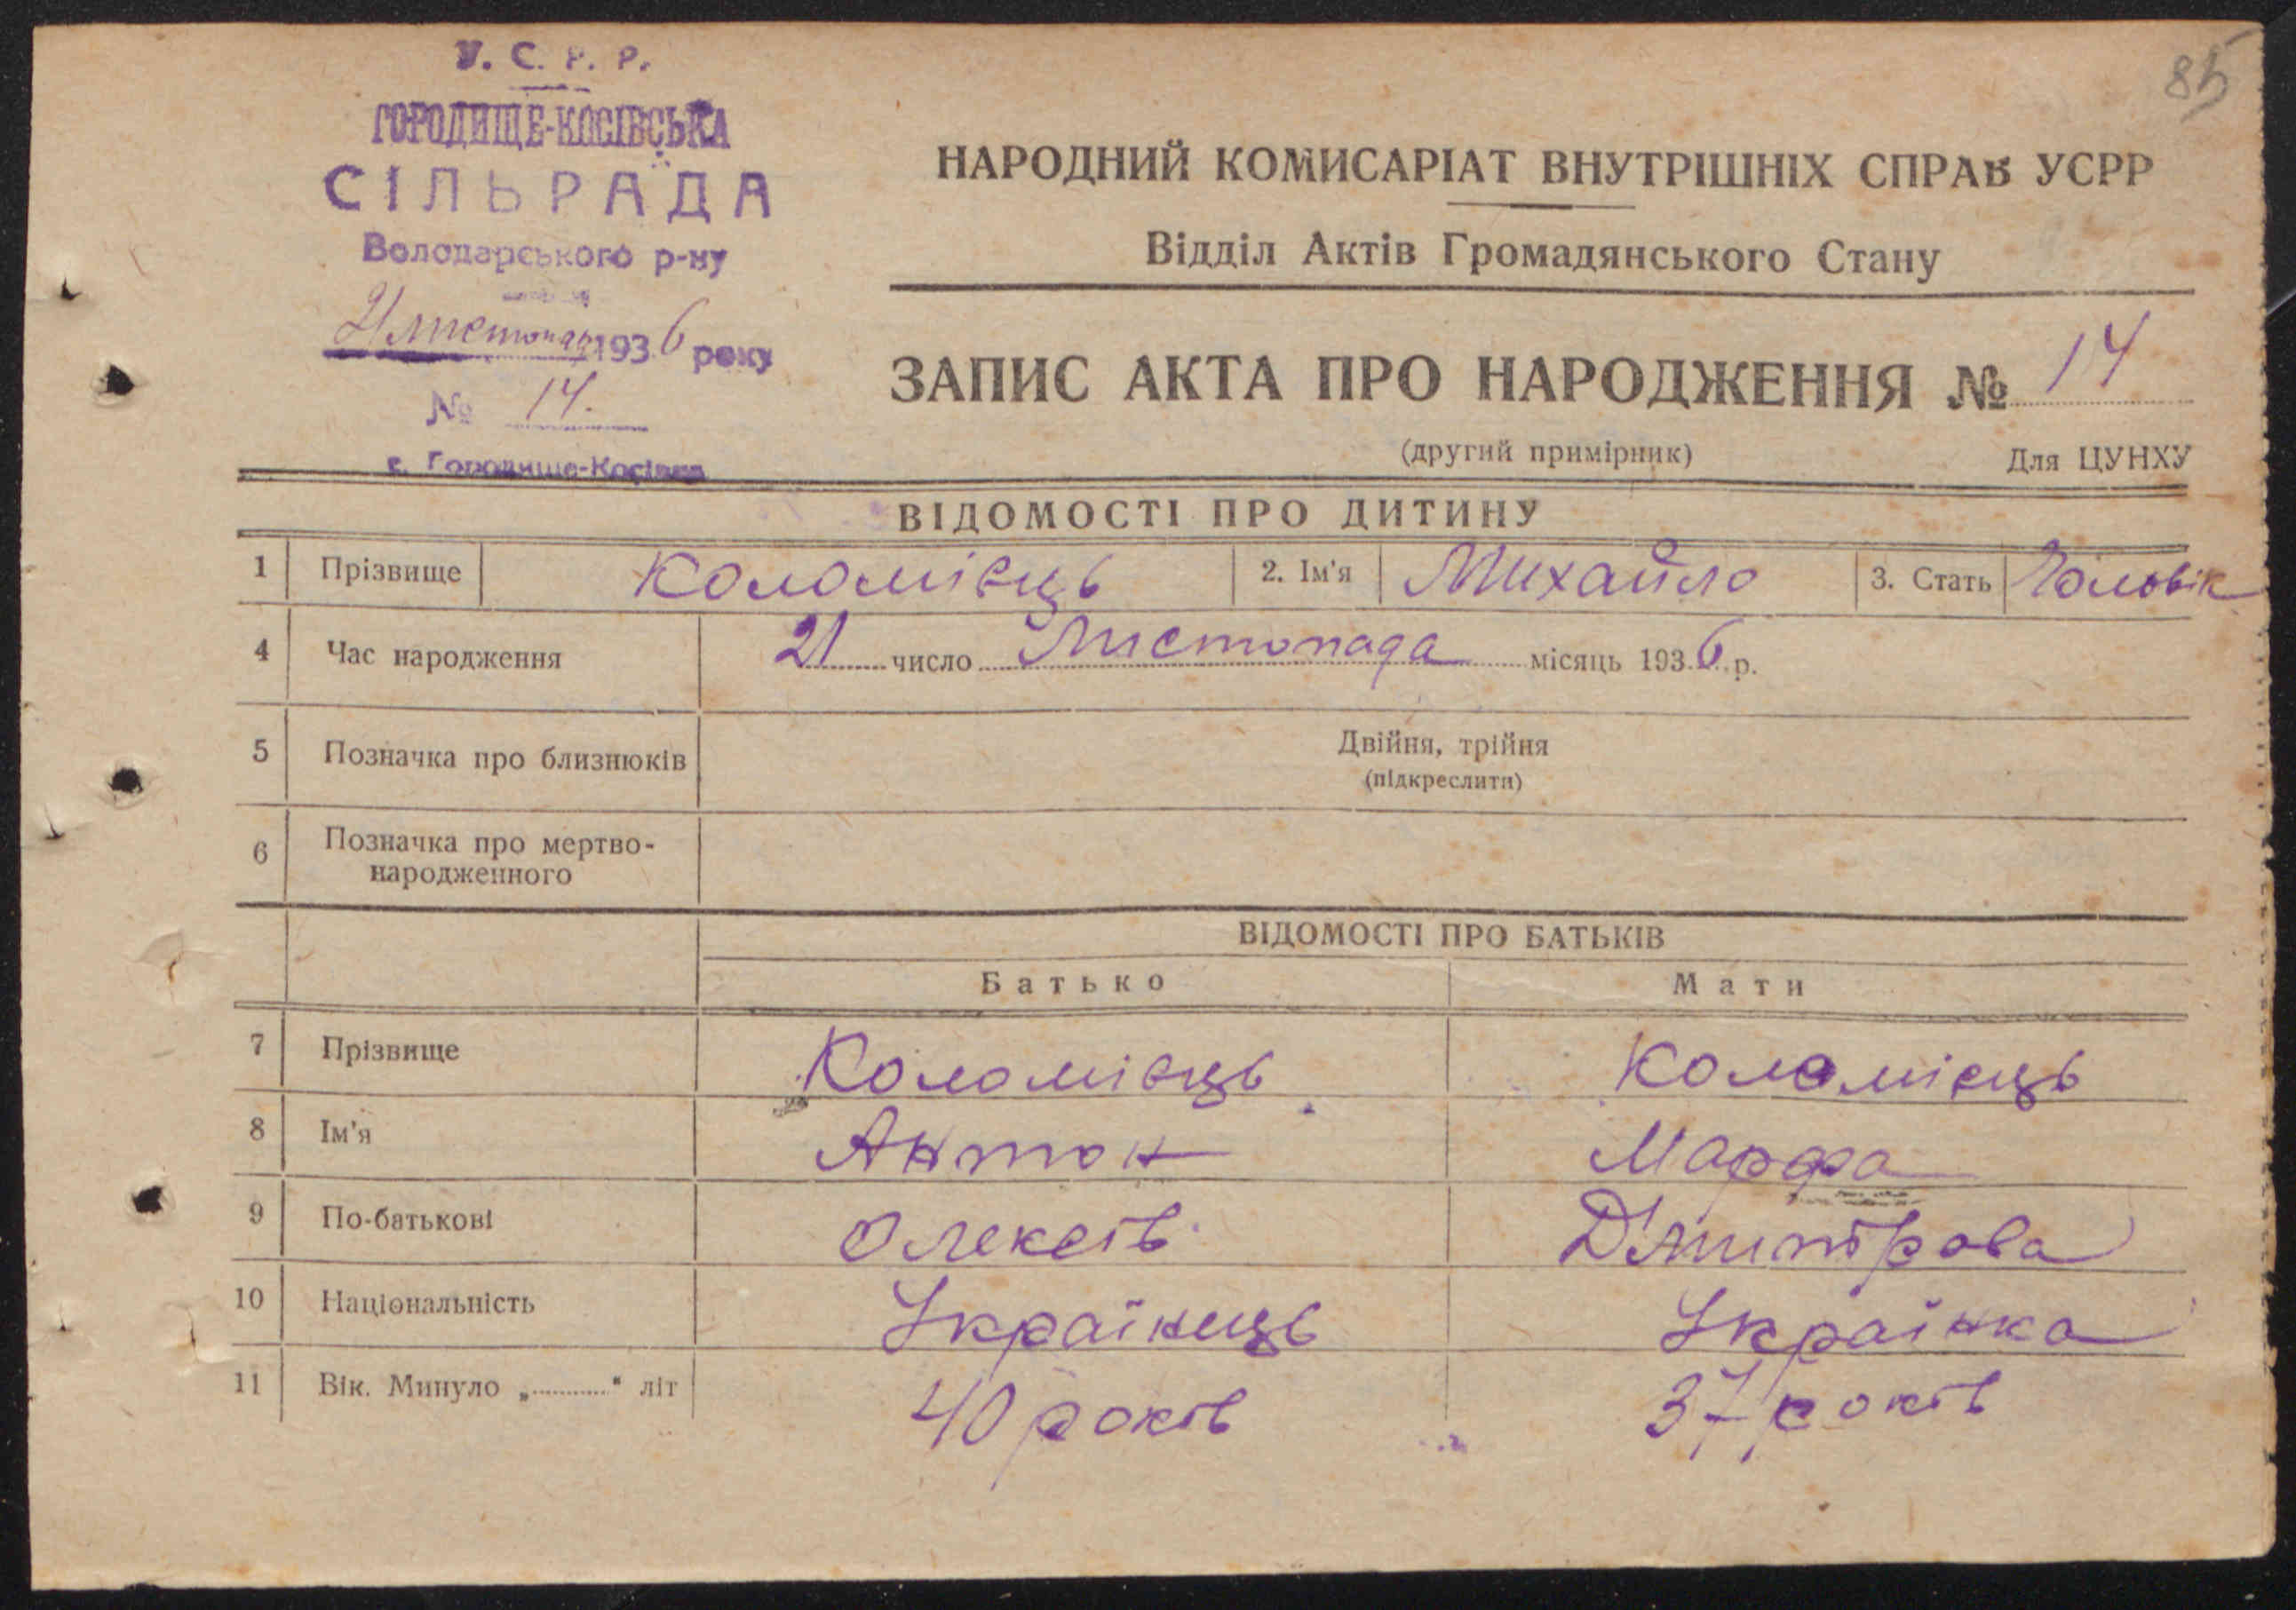 85
У. С. Р. Р.
ГОРОДИЩЕ-КОСІВСЬКА
СІЛЬРАДА
Володарського р-ну
21 листопад 1936 року
№ 14.
с. Городище-Косівка
НАРОДНИЙ КОМИСАРІАТ ВНУТРІШНІХ СПРАВ УСРР
Відділ Актів Громадянського Стану
ЗАПИС АКТА ПРО НАРОДЖЕННЯ № 14
(другий примірник) Для ЦУНХУ
ВІДОМОСТІ ПРО ДИТИНУ
1 Прізвище Коломієць 2. Ім'я Михайло 3. Стать Чоловік
4 Час народження 21 число Листопада місяць 1936 р.
5 Позначка про близнюків Двійня, трійня
(підкреслити)
6 Позначка про мертво-
народженного
ВІДОМОСТІ ПРО БАТЬКІВ
Батько Мати
7 Прізвище Коломієць Коломієць
8 Ім'я Антон Марфа
9 По-батькові Олексів Дмитрова
10 Національність Українець Українка
11 Вік. Минуло „............" літ 40 років 37 років